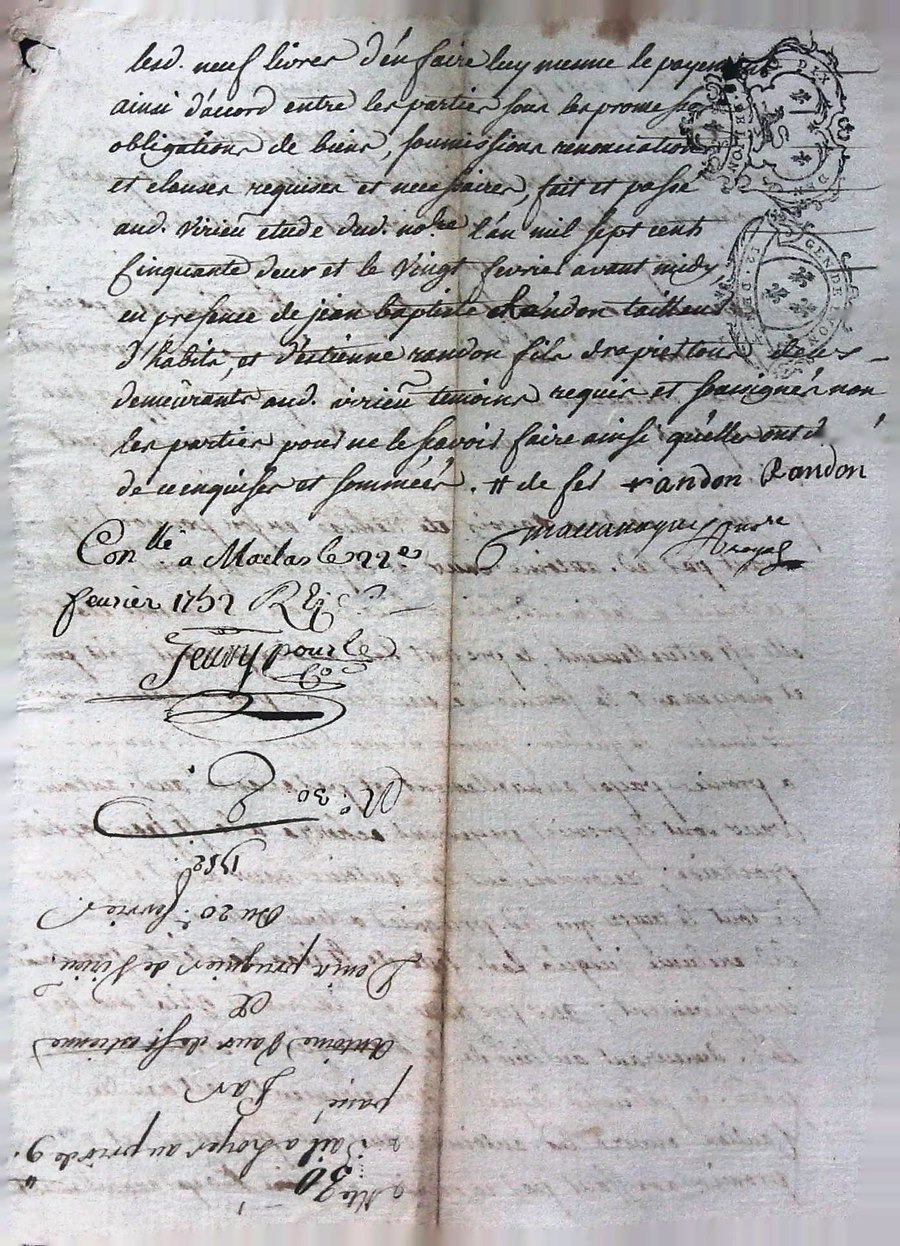 lesd. neuf livres d'en faire luy mesme le payem
ainsi d'accord entre les parties sous les promesses
obligations de biens, soumissions renonciations
et clauses requises et necessaires, fait et passé
aud. virieu etude dud. nore l'an mil sept cents
Cinquante deux et le vingt fevrier avant midy
en presence de jean baptiste chandon tailleur
d'habits, et d'estienne randon fils drapier tous deux
demeurants aud. virieu temoins requis et soussignés non
les parties pour ne le scavoir faire ainsi qu'elles ont
de ce enquises et sommées. # de fes randon Randon
nore
royal
Conllé a Maclas le 22e
fevrier 1752 R
Jeury pour le
Co
No. 30
1752
Du 20e fevrier
Louis prugnier de Virieu
&
Antoine de st estienne
par
passé
Bail a loyer au prix de 9
No 30
DIX
GEN DE LYON